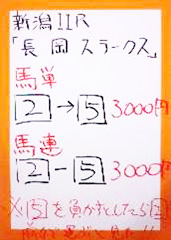 新潟11R
「長岡ステークス」
馬単
2 → 5 3000円
馬連
2 - 5 3000円
※5を負かすとしたら2